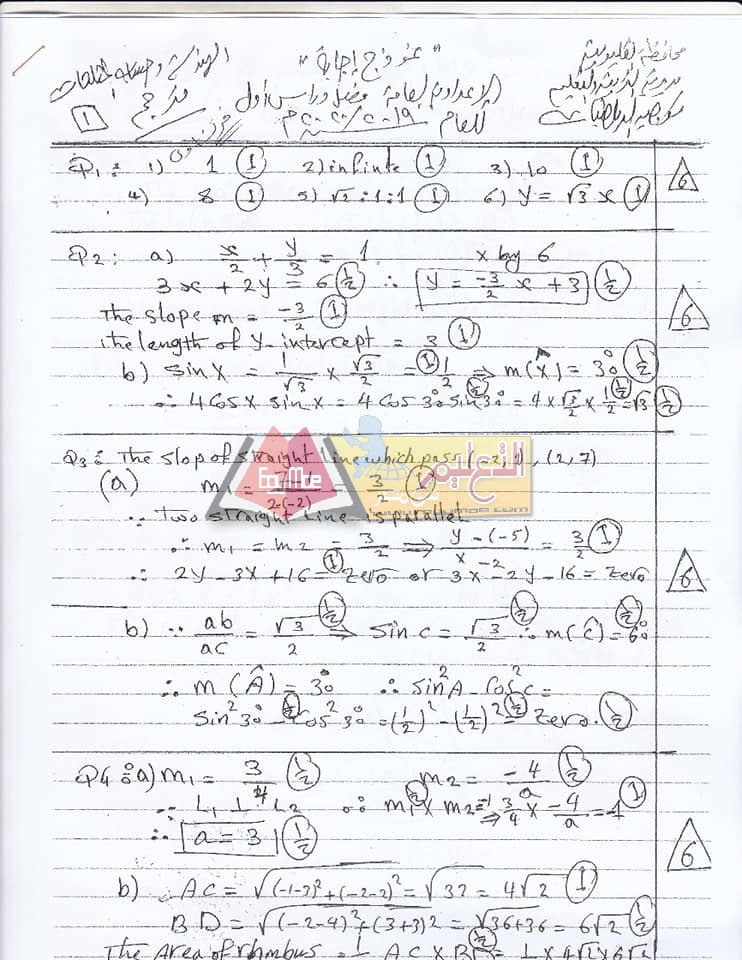 محافظة القليوبية
مديرية التربية والتعليم
" نموذج إجابة "
الهندسة وحساب المثلثات
الإعدادية العامة فصل دراسي أول
مترجم
للعام ٢٠١٩/٢٠٢٠م
١
Q1: 1) 1 ① 2) infinte ① 3) 10 ①
4) 8 ① 5) √2:1:1 ① 6) y = √3 x ①
6
Q2: a) x/2 + y/3 = 1 x by 6
3x + 2y = 6 ½ ∴ y = -3/2 x + 3 ½
The slope m = -3/2 ①
The length of y-intercept = 3 ①
6
b) sin X = 1/√3 × √3/2 = ① 1/2 ⇒ m(X̂) = 30° ½
∴ 4 Cos X sin X = 4 Cos 30° sin 30° ½ = 4 × √3/2 × 1/2 ½ = √3 ½
Q3: The slop of straight line which pass (-2,1), (2,7)
(a) m = 7-1/2-(-2) = 3/2 ①
∵ Two straight line is parallel
∴ m1 = m2 = 3/2 ⇒ y-(-5)/x-2 = 3/2 ①
∴ 2y-3x+16 = ① zero or 3x-2y-16 = zero
6
b) ∵ ab/ac = √3/2 ½ ⇒ sin c = √3/2 ½ ∴ m(Ĉ) = 60° ½
∴ m(Â) = 30° ∴ sin²A - Cos²c =
Sin²30° ½ - Cos²30° = (1/2)² - (1/2)² ½ = zero. ½
Q4: a) m1 = 3/4 ½ m2 = -4/a ½
∵ L1 ⊥ L2 ∴ m1 × m2 = -1 ½ ⇒ 3/4 × -4/a = -1 ①
∴ a = 3 ½
6
b) AC = √(-1-3)²+(-2-2)² = √32 = 4√2 ①
BD = √(-2-4)²+(3+3)² = √36+36 = 6√2 ½
The Area of rhmbus = 1/2 AC × BD ½ = 1/2 × 4√2 × 6√2
التعليم